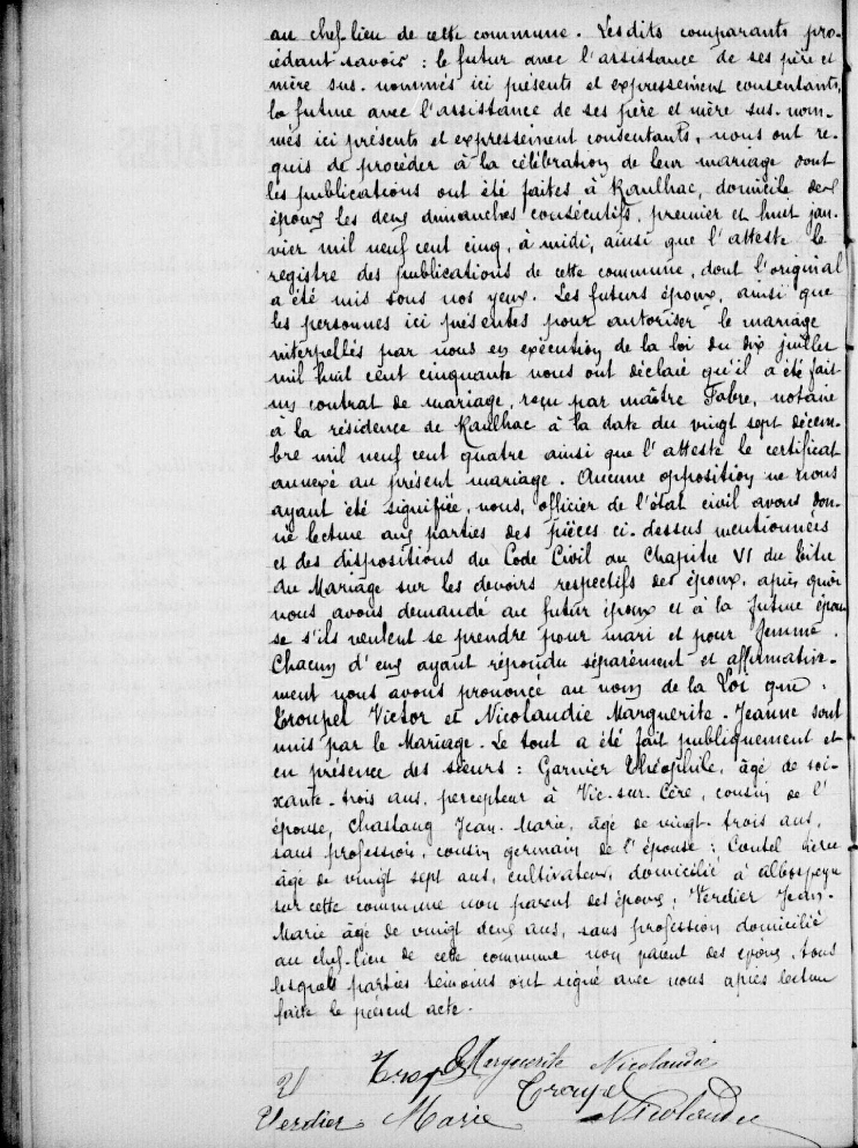 au chef-lieu de cette commune. Lesdits comparants pro-
cédant savoir : le futur avec l'assistance de ses père et
mère sus-nommés ici présents et expressément consentants,
la future avec l'assistance de ses père et mère sus-nom-
més ici présents et expressément consentants, nous ont re-
quis de procéder à la célébration de leur mariage dont
les publications ont été faites à Raulhac, domicile des
époux les deux dimanches consécutifs, premier et huit jan-
vier mil neuf cent cinq, à midi, ainsi que l'atteste le
registre des publications de cette commune, dont l'original
a été mis sous nos yeux. Les futurs époux, ainsi que
les personnes ici présentes pour autoriser le mariage
interpellés par nous en exécution de la loi du dix juillet
mil huit cent cinquante nous ont déclaré qu'il a été fait
un contrat de mariage, reçu par maître Fabre, notaire
à la résidence de Raulhac à la date du vingt sept décem-
bre mil neuf cent quatre ainsi que l'atteste le certificat
annexé au présent mariage. Aucune opposition ne nous
ayant été signifiée, nous, officier de l'état civil avons don-
né lecture aux parties des pièces ci-dessus mentionnées
et des dispositions du Code Civil au Chapitre VI du Titre
du Mariage sur les devoirs respectifs des époux, après quoi
nous avons demandé au futur époux et à la future épou
se s'ils veulent se prendre pour mari et pour femme.
Chacun d'eux ayant répondu séparément et affirmative-
ment nous avons prononcé au nom de la Loi que :
Troupel Victor et Nicolaudie Marguerite-Jeanne sont
unis par le Mariage. Le tout a été fait publiquement et
en présence des sieurs : Garnier Théophile, âgé de soi-
xante-trois ans, percepteur à Vic-sur-Cère, cousin de l'
épouse, Chastang Jean-Marie, âgé de vingt-trois ans,
sans profession, cousin germain de l'épouse ; Coutel
âgé de vingt sept ans, cultivateur, domicilié à Albospeyre
sur cette commune non parent des époux ; Verdier Jean-
Marie âgé de vingt deux ans, sans profession domicilié
au chef-lieu de cette commune non parent des époux, tous
lesquels parties témoins ont signé avec nous après lecture
faite le présent acte.
Marguerite Nicolaudie
Troupel
Verdier Marie Nicolaudie